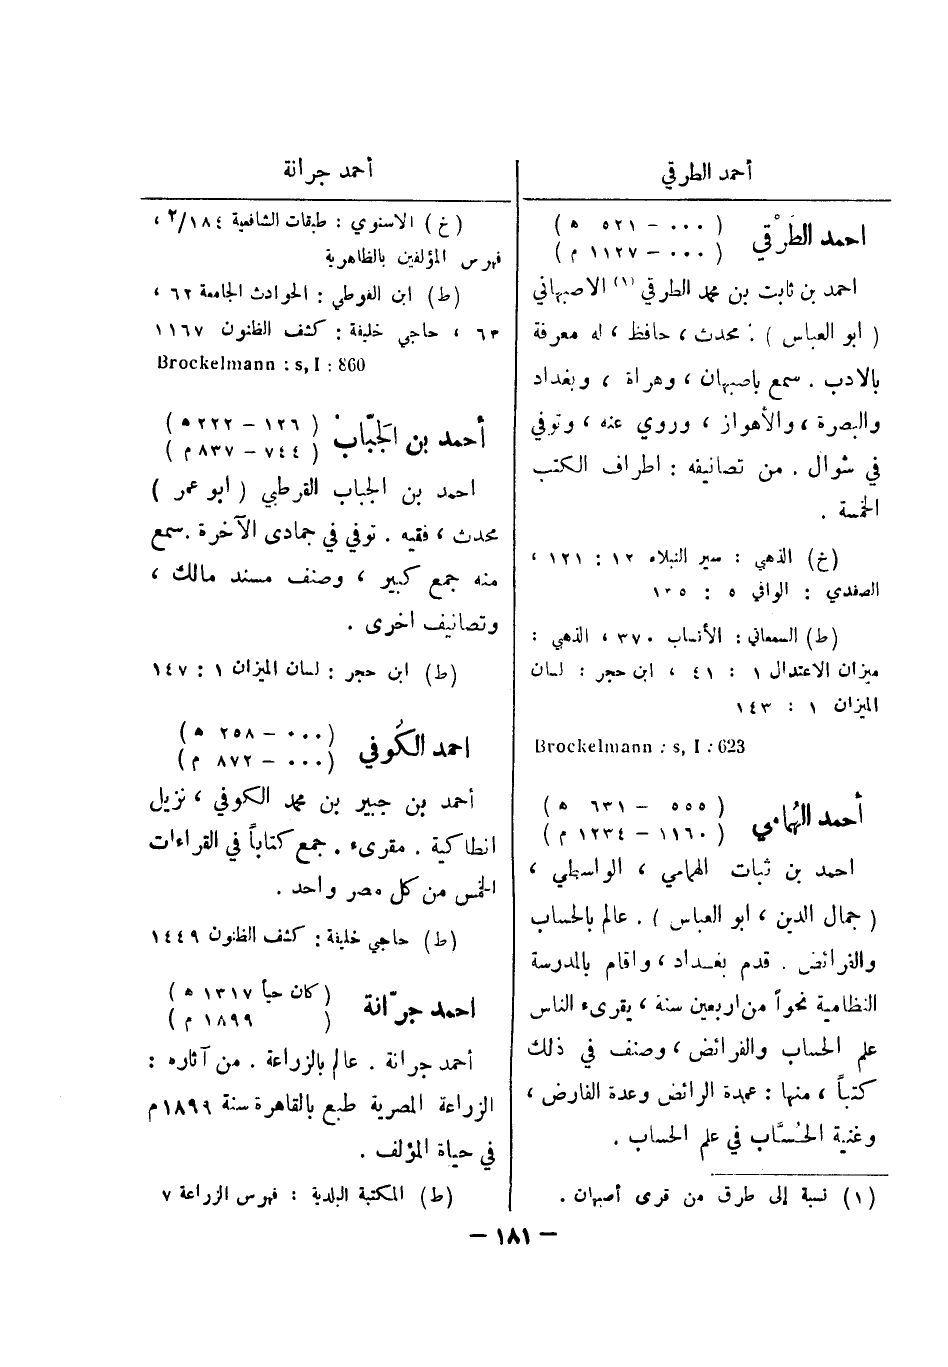 أحمد الطرقي
احمد الطَرْقي
( ٠٠٠ – ٥٢١ ه )
( ٠٠٠ – ١١٢٧ م )
احمد بن ثابت بن محمد الطرقي (١) الاصبهاني
( ابو العباس ) . محدث ، حافظ ، له معرفة
بالادب . سمع باصبهان ، وهراة ، وبغداد
والبصرة ، والأهواز ، وروي عنه ، وتوفي
في شوال . من تصانيفه : اطراف الكتب
الخمسة .
(خ) الذهبي : سير النبلاء ١٢ : ١٢١ ،
الصفدي : الوافي ٥ : ١٣٥
(ط) السمعاني : الأنساب ٣٧٠ ، الذهبي :
ميزان الاعتدال ١ : ٤١ ، ابن حجر : لسان
الميزان ١ : ١٤٣
Brockelmann : s, I : 623
أحمد الهُمامي
( ٥٥٥ – ٦٣١ ه )
( ١١٦٠ – ١٢٣٤ م )
احمد بن ثبات الهمامي ، الواسطي ،
( جمال الدين ، ابو العباس ) . عالم بالحساب
والفرائض . قدم بغداد ، واقام بالمدرسة
النظامية نحواً من اربعين سنة ، يقرىء الناس
علم الحساب والفرائض ، وصنف في ذلك
كتباً ، منها : عمدة الرائض وعدة الفارض ،
وغنية الحُسَّاب في علم الحساب .
(١) نسبة إلى طرق من قرى أصبهان .
أحمد جرانة
(خ) الاسنوي : طبقات الشافعية ٢/١٨٤ ،
فهرس المؤلفين بالظاهرية
(ط) ابن الفوطي : الحوادث الجامعة ٦٢ ،
٦٣ ، حاجي خليفة : كشف الظنون ١١٦٧
Brockelmann : s, I : 860
أحمد بن الجَبّاب
( ١٢٦ – ٢٢٢ ه )
( ٧٤٤ – ٨٣٧ م )
احمد بن الجباب القرطبي ( ابو عمر )
محدث ، فقيه . توفي في جمادى الآخرة . سمع
منه جمع كبير ، وصنف مسند مالك ،
وتصانيف اخرى .
(ط) ابن حجر : لسان الميزان ١ : ١٤٧
احمد الكُوفي
( ٠٠٠ – ٢٥٨ ه )
( ٠٠٠ – ٨٧٢ م )
أحمد بن جبير بن محمد الكوفي ، نزيل
انطاكية . مقرىء . جمع كتاباً في القراءات
الخمس من كل مصر واحد .
(ط) حاجي خليفة : كشف الظنون ١٤٤٩
احمد جرّانة
( كان حياً ١٣١٧ ه )
( ١٨٩٩ م )
أحمد جرانة . عالم بالزراعة . من آثاره :
الزراعة المصرية طبع بالقاهرة سنة ١٨٩٩ م
في حياة المؤلف .
(ط) المكتبة البلدية : فهرس الزراعة ٧
– ١٨١ –